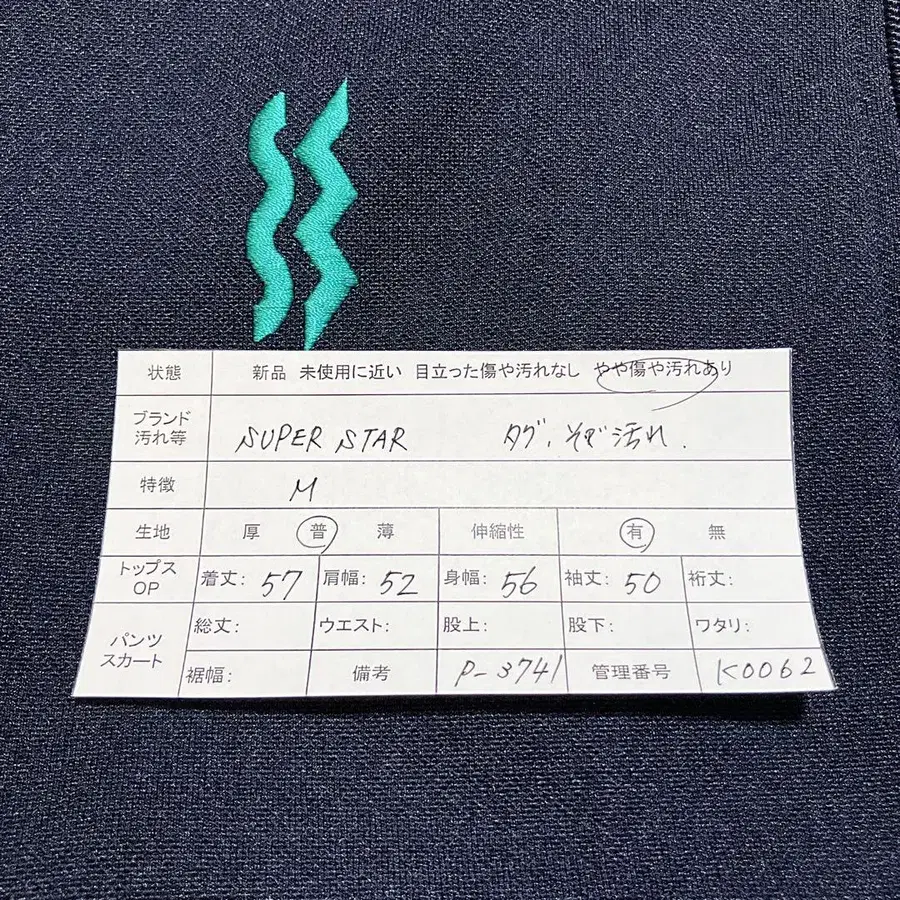 状態 新品 未使用に近い 目立った傷や汚れなし やや傷や汚れあり
ブランド 汚れ等 SUPER STAR タグ、そで汚れ.
特徴 M
生地 厚 普 薄 伸縮性 有 無
トップス OP 着丈: 57 肩幅: 52 身幅: 56 袖丈: 50 裄丈:
パンツ スカート 総丈: ウエスト: 股上: 股下: ワタリ:
裾幅: 備考 P-3741 管理番号 K0062